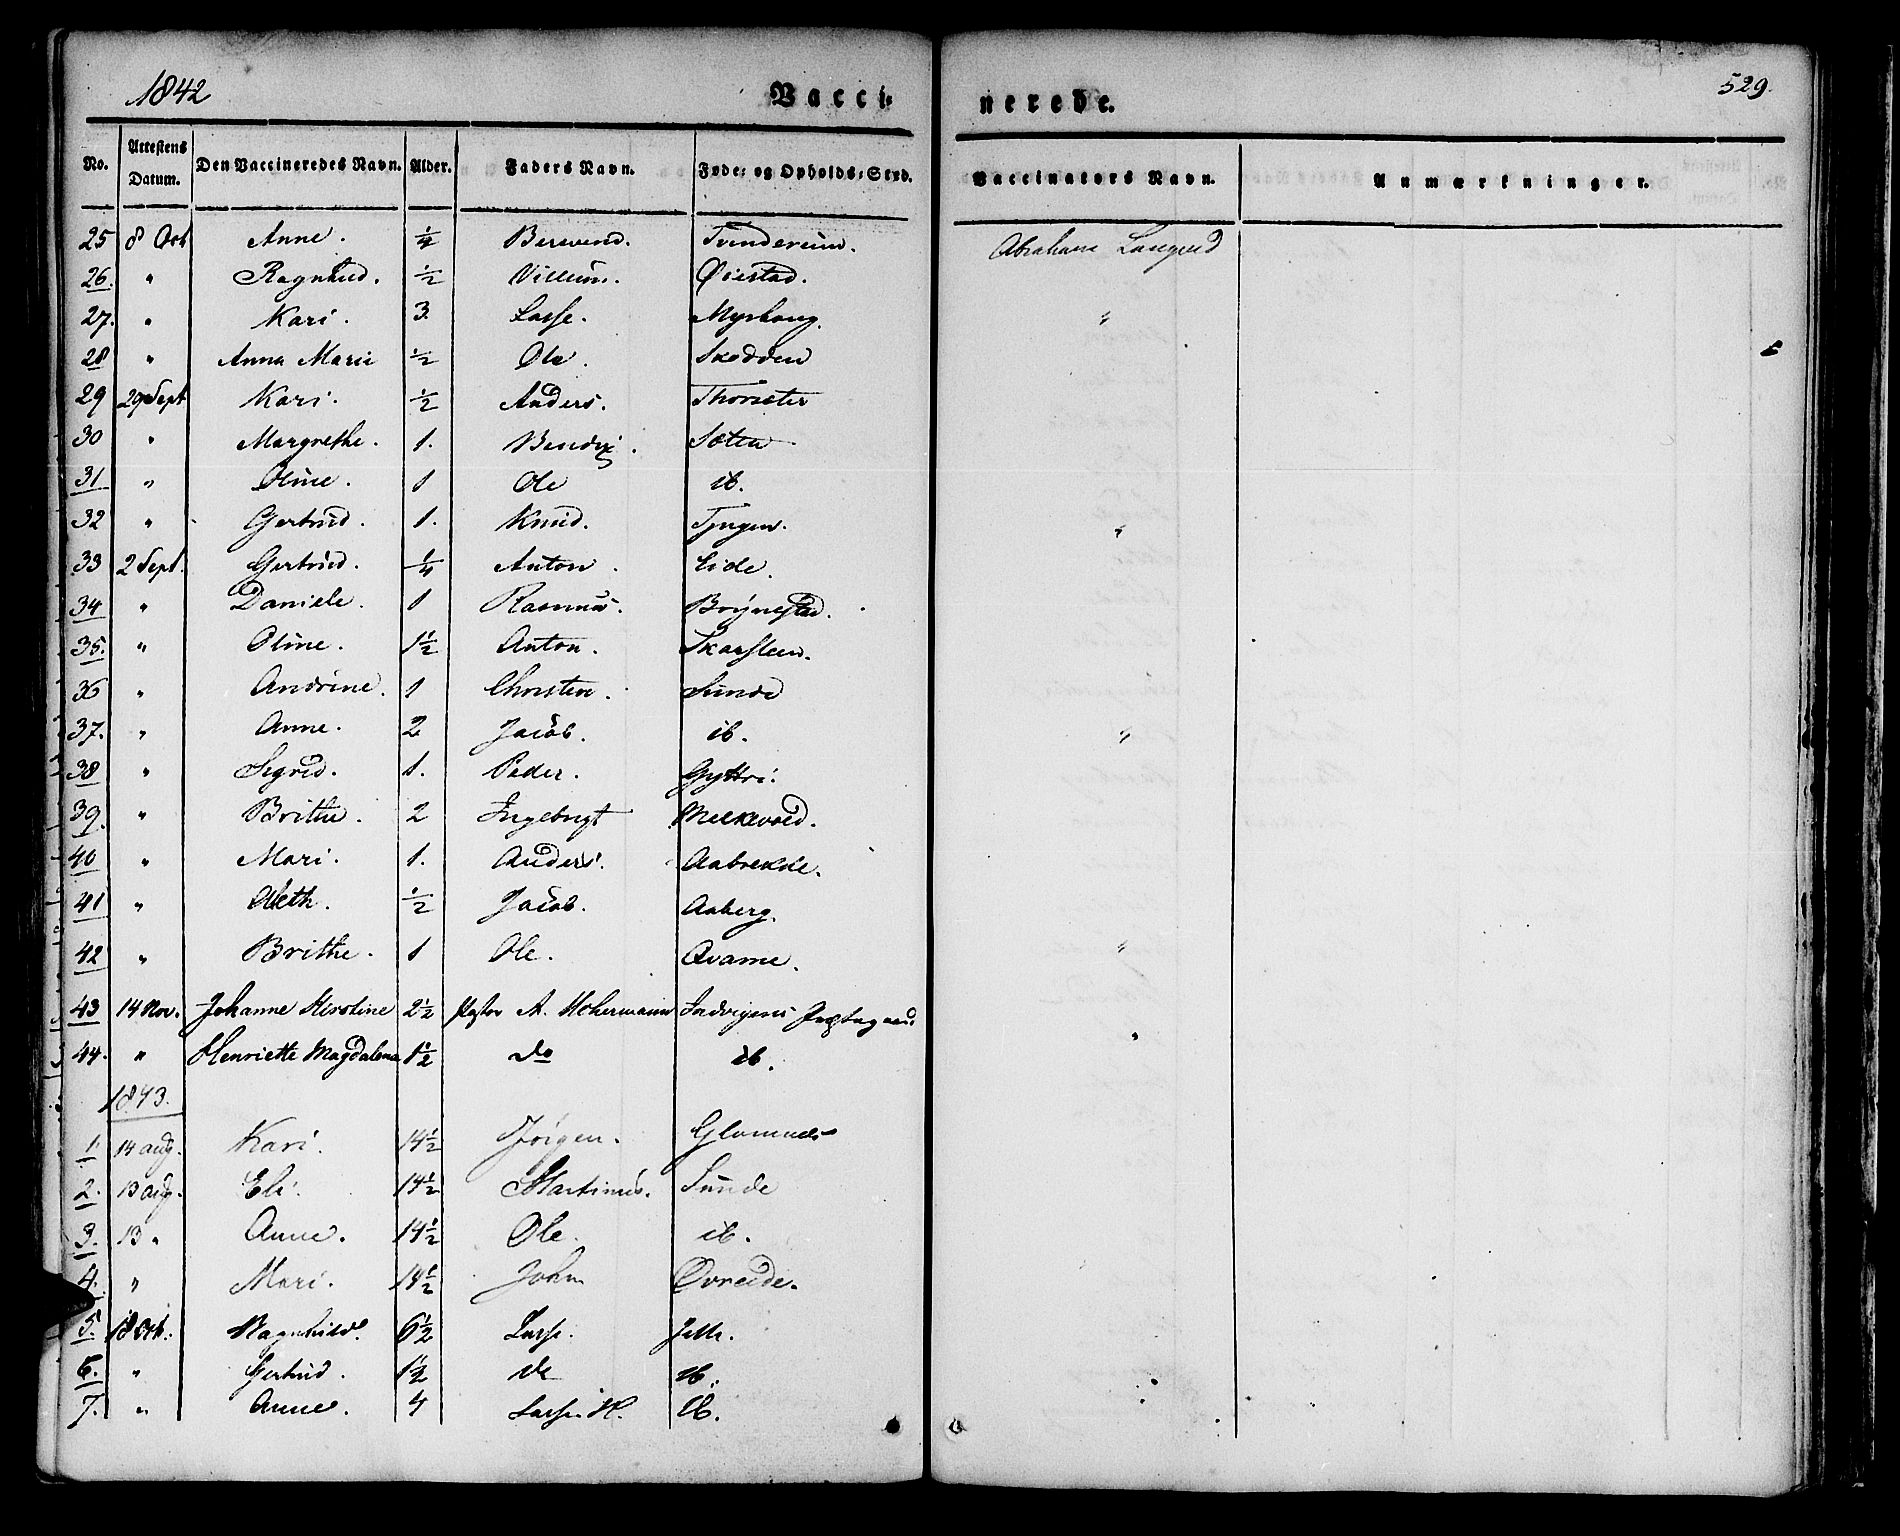 1842 Vacci- nerede. 529.
No. Attestens Datum. Den Vaccineredes Navn. Alder. Faders Navn. Føde- og Opholds-Sted. Vaccinators Navn. Anmærkninger.
25 8 Oct Anne. 1/4 Berend. Abraham
26. " Ragnhild. 1/2 Villum. Øiestad.
27. " Kari. 3. Lasse. Myrhaug. "
28 " Anna Marie 1/2 Ole. Skodden
29 29 Sept Kari. 1/2 Anders.
30 " Margrethe. 1. Bendix. Sæten
31 " Oline. 1 Ole ib.
32 " Gertrud. 1. Knud. Tjugen. "
33 2 Sept. Gertrud. 1/4 Anton. Eide.
34 " Daniele. 1 Rasmus. Brynestad.
35. " Oline. 1 1/2 Anton. Skarsteen.
36 " Andrine. 1 Christen. Sunde
37. " Anne. 2 Jacob. ib. "
38 " Sigrid. 1. Peder. Gyttri.
39. " Brithe. 2 Ingebrigt Melkevold.
40 " Mari. 1. Anders. Aabrekke.
41 " Aleth. 1/2 Jacob. Aaberg.
42 " Brithe. 1 Ole. Qvame. "
43 14 Nov. Johanne Kirstine 2 1/2 Pastor A. Indvigens
44. " Henriette Magdalena 1 1/2 do ib. "
1843.
1. 14 aug. Kari. 14 1/2 Jørgen. Glomnes
2. 13 aug. Eli. 14 1/2 Martinus. Sunde
3. 13 " Anne. 14 1/2 Ole. ib.
4. " Mari. 14 1/2 John Øvreeide.
5. 18 Oct. Ragnhild. 6 1/2 Lasse.
6. " Gertrud. 1 1/2 do ib.
7. " Anne. 4 Lasse H. ib.